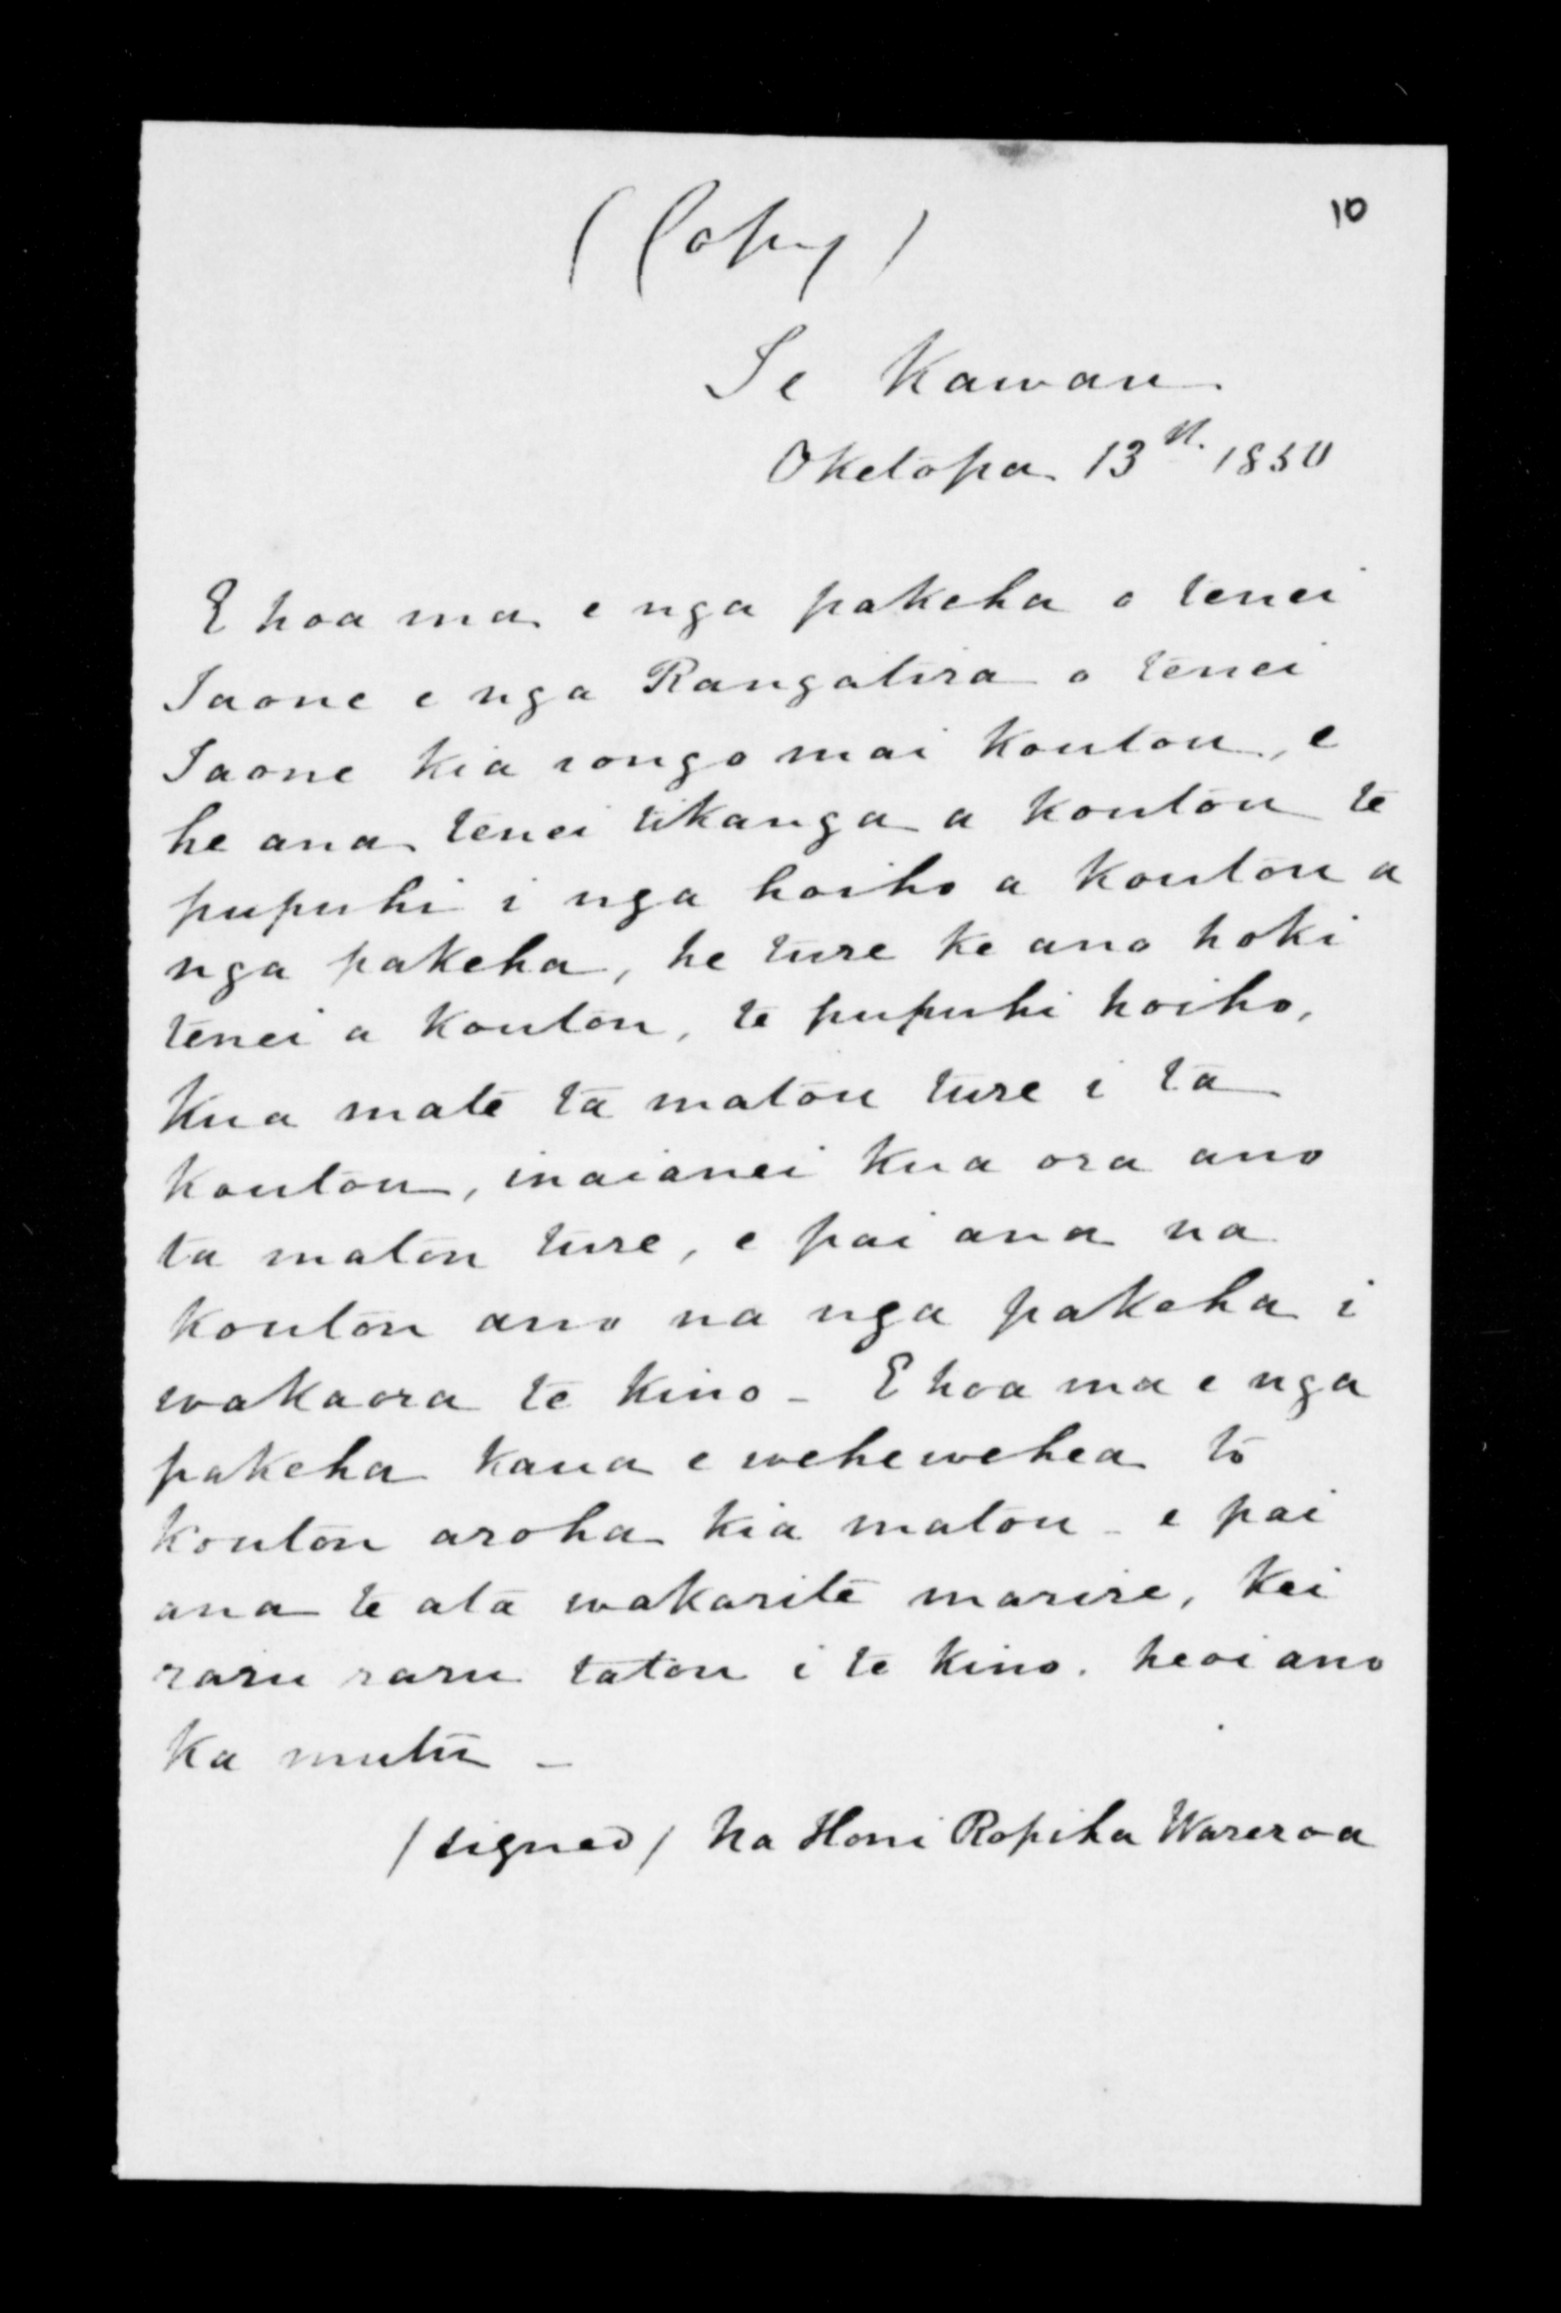 (Copy)
10
Te Kawau
Oketopa 13th. 1850
E hoa ma e nga pakeha o tenei
Taone e nga Rangatira o tenei
Taone kia rongo mai koutou, e
he ana tenei tikanga a koutou te
pupuhi i nga hoiho a koutou a
nga pakeha, he ture ke ano hoki
tenei a koutou, te pupuhi hoiho,
Kua mate ta matou ture i ta
koutou, inaianei kua ora ano
ta matou ture, e pai ana na
koutou ano na nga pakeha i
wakaora te kino - E hoa ma e nga
pakeha kaua e wehewehea to
koutou aroha kia matou - e pai
ana te ata wakarite marire, kei
raru raru tatou i te kino. heoi ano
Ka mutu -
/signed/ Na Honi Ropiha Wareroa